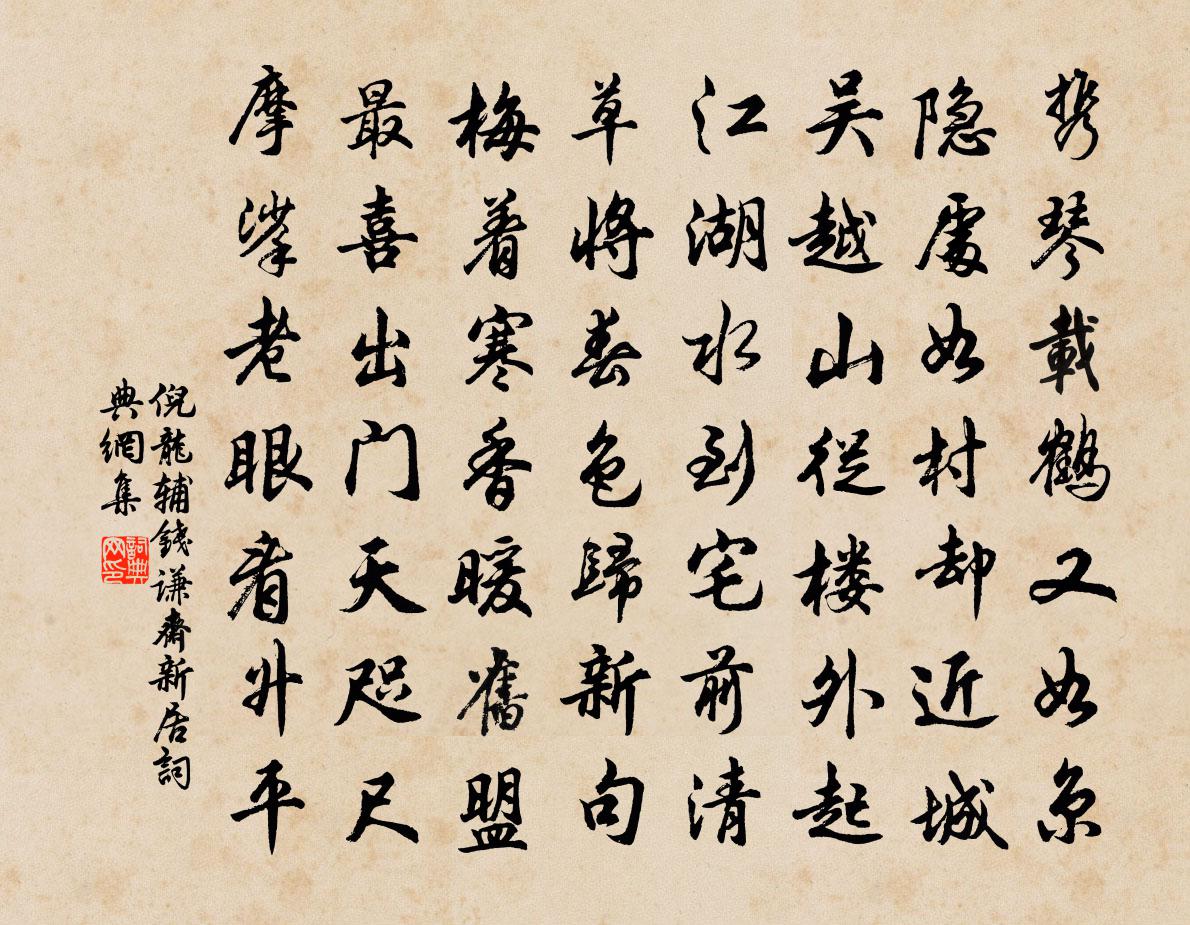 携琴載鶴又如京
隐處如村却近城
吴越山從楼外起
江湖水到宅前清
草將春色歸新句
梅着寒香暖舊盟
最喜出门天咫尺
摩挲老眼看升平
倪龍辅錢谦齋新居詞
典網集
詞典
网印